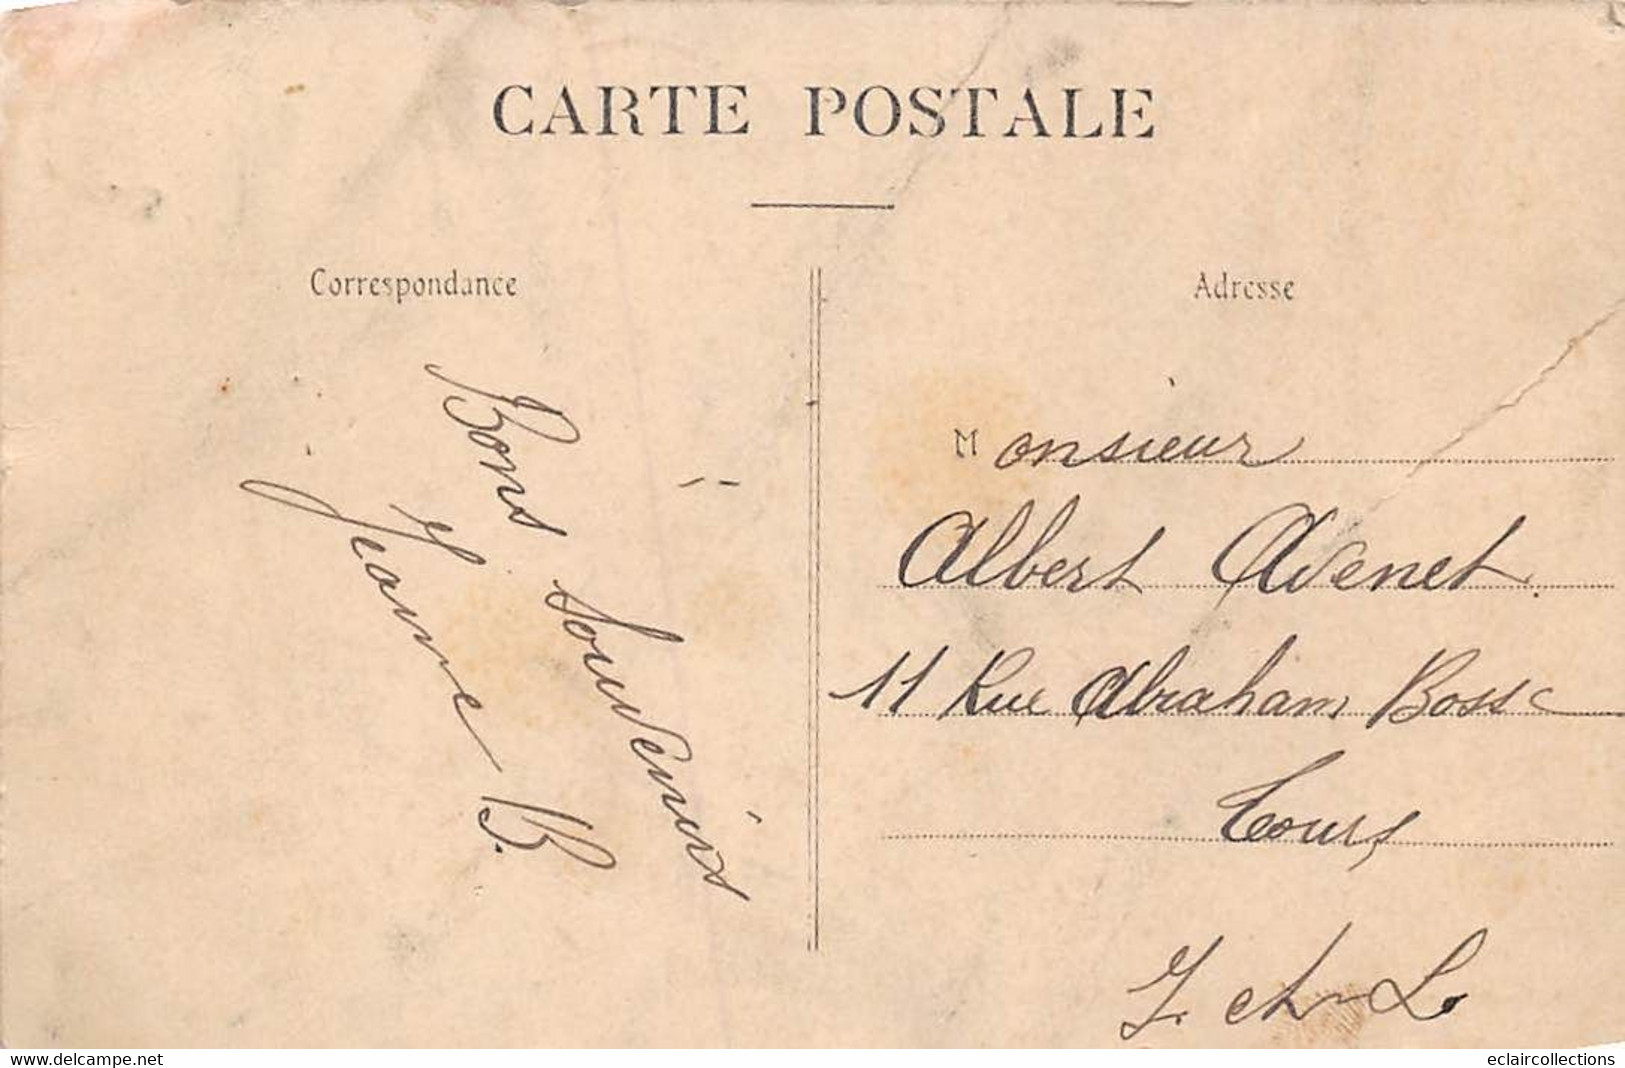 CARTE POSTALE
Correspondance
Bons souvenirs
Jeanne B.
Adresse
Monsieur
Albert Avenet.
11 Rue Abraham Bosse
Tours
I. et L.
eclaircollections